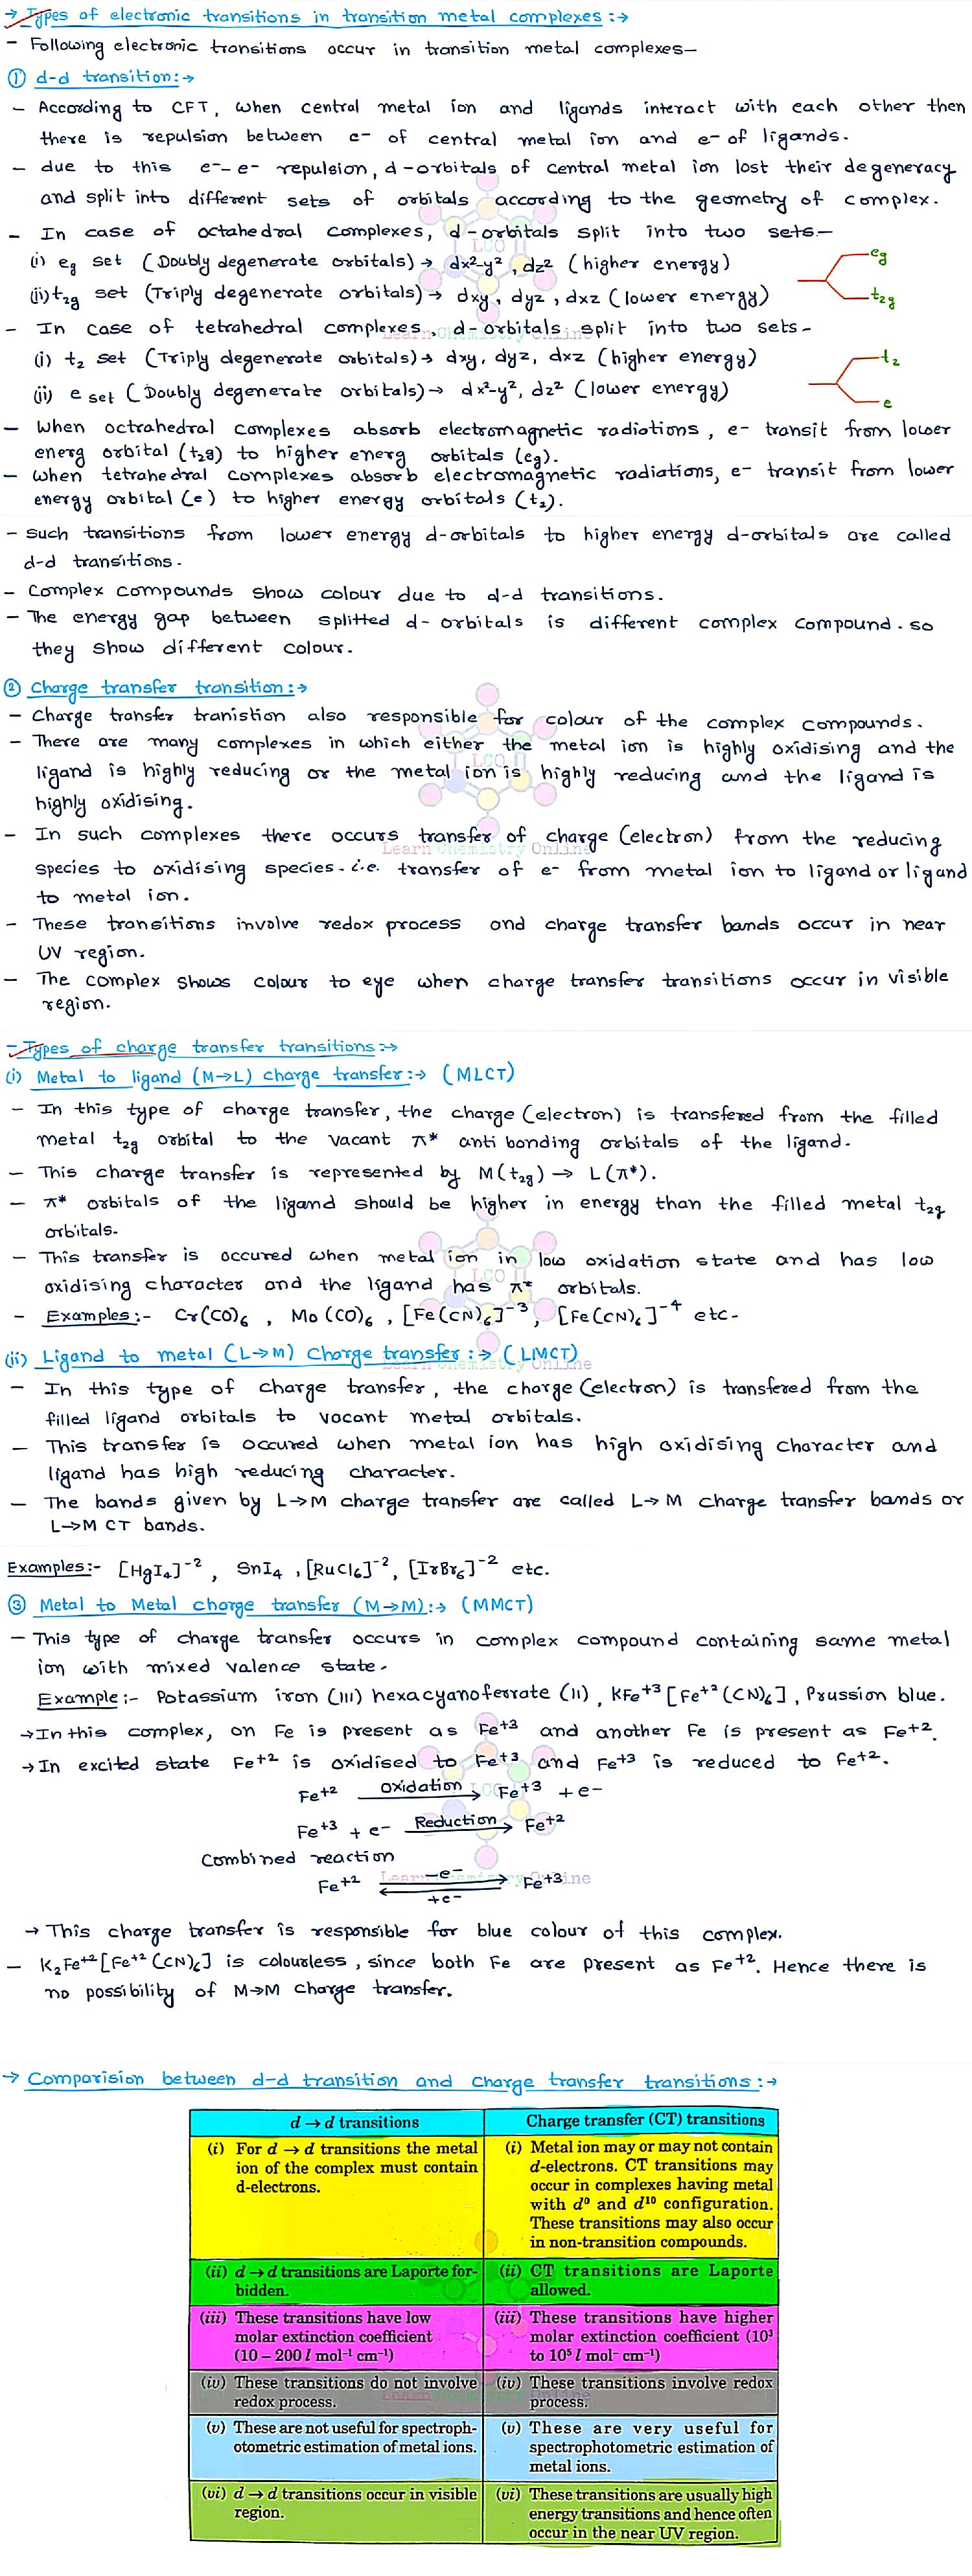 → Types of electronic transitions in transition metal complexes :→
- Following electronic transitions occur in transition metal complexes—
① d-d transition:→
- According to CFT, when central metal ion and ligands interact with each other then
there is repulsion between e- of central metal ion and e- of ligands.
- due to this e-- e- repulsion, d-orbitals of central metal ion lost their degeneracy
and split into different sets of orbitals according to the geometry of complex.
- In case of octahedral complexes, d-orbitals split into two sets-
(i) eg set (Doubly degenerate orbitals) → dx²-y², dz² (higher energy)
eg
(ii) t2g set (Triply degenerate orbitals) → dxy, dyz, dxz (lower energy)
t2g
- In case of tetrahedral complexes, d-orbitals split into two sets-
(i) t2 set (Triply degenerate orbitals) → dxy, dyz, dxz (higher energy)
t2
(ii) e set (Doubly degenerate orbitals) → dx²-y², dz² (lower energy)
e
- When octrahedral complexes absorb electromagnetic radiations, e- transit from lower
energ orbital (t2g) to higher energ orbitals (eg).
- when tetrahedral complexes absorb electromagnetic radiations, e- transit from lower
energy orbital (e) to higher energy orbitals (t2).
- such transitions from lower energy d-orbitals to higher energy d-orbitals are called
d-d transitions.
- Complex compounds show colour due to d-d transitions.
- The energy gap between splitted d-orbitals is different complex compound. so
they show different colour.
② Charge transfer transition:→
- Charge transfer tranistion also responsible for colour of the complex compounds.
- There are many complexes in which either the metal ion is highly oxidising and the
ligand is highly reducing or the metal ion is highly reducing and the ligand is
highly oxidising.
- In such complexes there occurs transfer of charge (electron) from the reducing
species to oxidising species. i.e. transfer of e- from metal ion to ligand or ligand
to metal ion.
- These transitions involve redox process and charge transfer bands occur in near
UV region.
- The complex shows colour to eye when charge transfer transitions occur in visible
region.
- Types of charge transfer transitions:→
(i) Metal to ligand (M→L) charge transfer:→ (MLCT)
- In this type of charge transfer, the charge (electron) is transfered from the filled
metal t2g orbital to the vacant π* anti bonding orbitals of the ligand.
- This charge transfer is represented by M(t2g) → L(π*).
- π* orbitals of the ligand should be higher in energy than the filled metal t2g
orbitals.
- This transfer is occured when metal ion in low oxidation state and has low
oxidising character and the ligand has π* orbitals.
- Examples:- Cr(CO)6, Mo(CO)6, [Fe(CN)6]-3, [Fe(CN)6]-4 etc-
(ii) Ligand to metal (L→M) Charge transfer:→ (LMCT)
- In this type of charge transfer, the charge (electron) is transfered from the
filled ligand orbitals to vacant metal orbitals.
- This transfer is occured when metal ion has high oxidising character and
ligand has high reducing character.
- The bands given by L→M charge transfer are called L→M charge transfer bands or
L→M CT bands.
Examples:- [HgI4]-2, SnI4, [RuCl6]-2, [IrBr6]-2 etc.
③ Metal to Metal charge transfer (M→M):→ (MMCT)
- This type of charge transfer occurs in complex compound containing same metal
ion with mixed valence state.
Example:- Potassium iron (III) hexacyanoferrate (II), KFe+3[Fe+2(CN)6], Prussion blue.
→ In this complex, on Fe is present as Fe+3 and another Fe is present as Fe+2.
→ In excited state Fe+2 is oxidised to Fe+3 and Fe+3 is reduced to Fe+2.
Fe+2 oxidation→ Fe+3 + e-
Fe+3 + e- Reduction→ Fe+2
Combined reaction
Fe+2 -e- ⇌ +e- Fe+3
→ This charge transfer is responsible for blue colour of this complex.
- K2Fe+2[Fe+2(CN)6] is colourless, since both Fe are present as Fe+2. Hence there is
no possibility of M→M charge transfer.
→ Comparision between d-d transition and charge transfer transitions:→
d → d transitions
Charge transfer (CT) transitions
(i) For d → d transitions the metal
ion of the complex must contain
d-electrons.
(i) Metal ion may or may not contain
d-electrons. CT transitions may
occur in complexes having metal
with d⁰ and d¹⁰ configuration.
These transitions may also occur
in non-transition compounds.
(ii) d → d transitions are Laporte for-
bidden.
(ii) CT transitions are Laporte
allowed.
(iii) These transitions have low
molar extinction coefficient
(10 – 200 l mol⁻¹ cm⁻¹)
(iii) These transitions have higher
molar extinction coefficient (10³
to 10⁵ l mol⁻ cm⁻¹)
(iv) These transitions do not involve
redox process.
(iv) These transitions involve redox
process.
(v) These are not useful for spectroph-
otometric estimation of metal ions.
(v) These are very useful for
spectrophotometric estimation of
metal ions.
(vi) d → d transitions occur in visible
region.
(vi) These transitions are usually high
energy transitions and hence often
occur in the near UV region.
LCO
Learn Chemistry Online